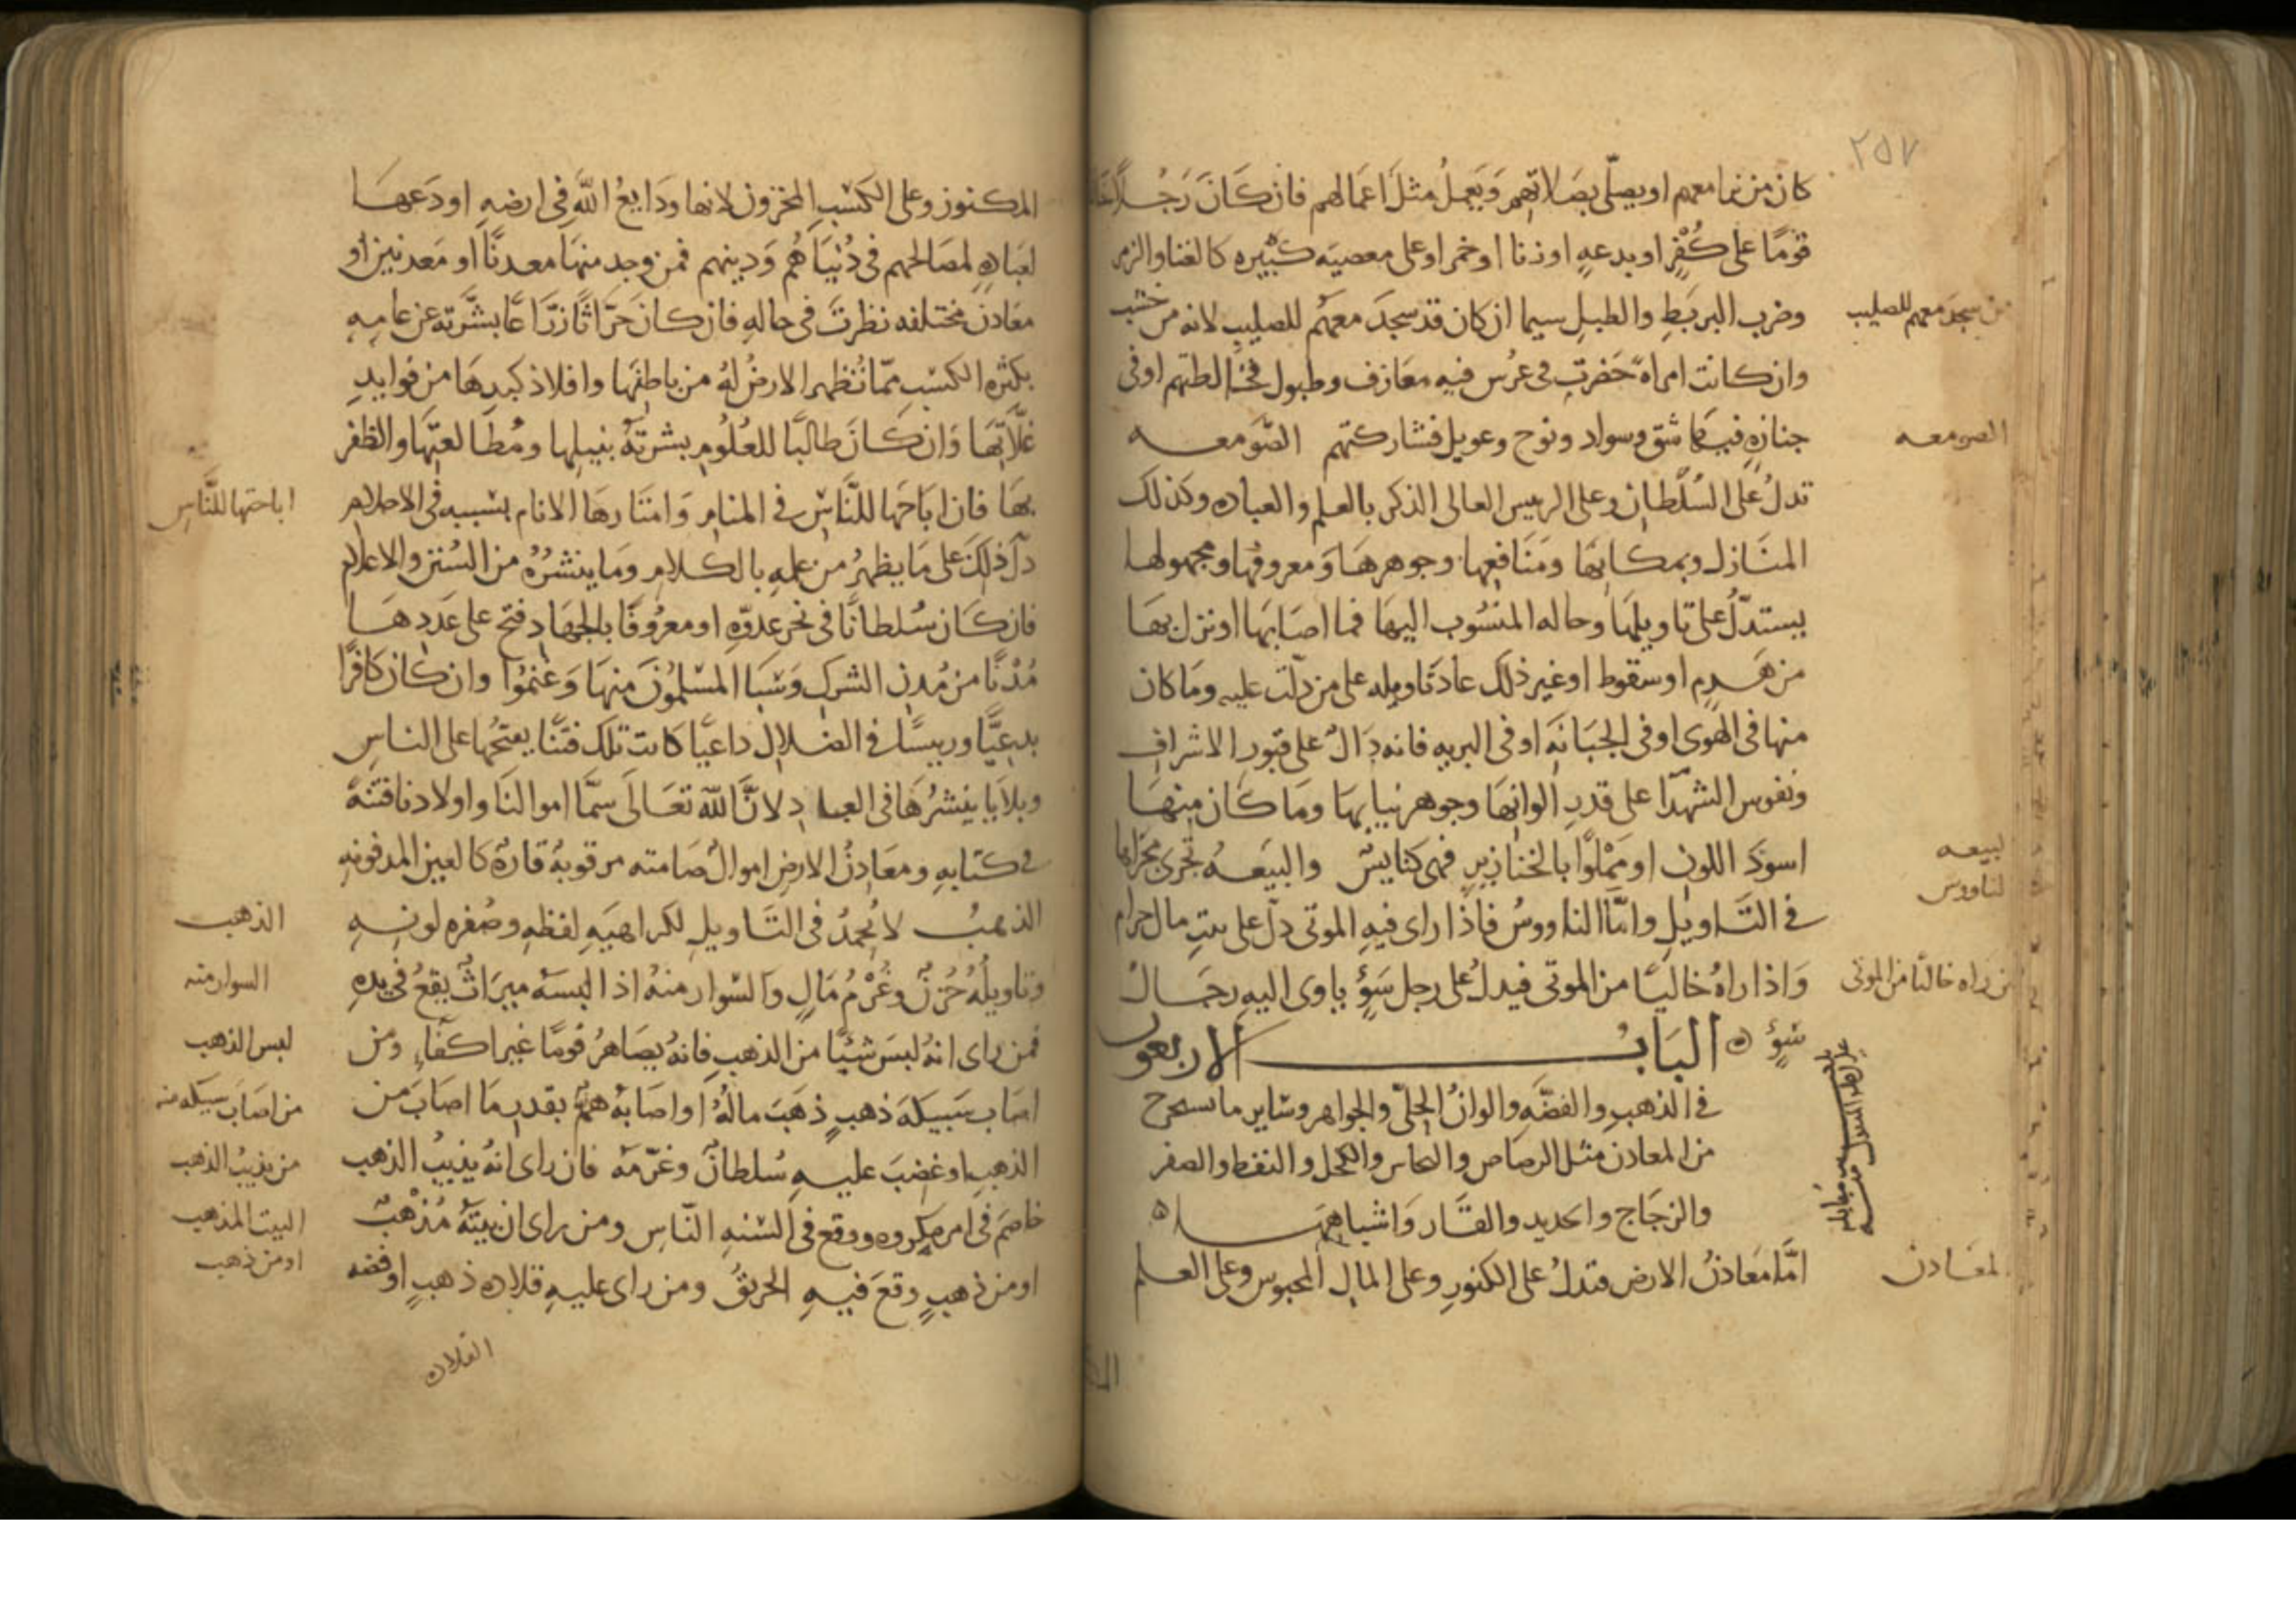 ٢٥٧
كان من نما معهم او يصلّي بصلاتهم وَيَعملُ مثلَ اعمالهم فان كَانَ رَجُلاً
قومًا على كُفْرٍ او بدعهٍ او زنا او خمر او على معصيَه كَبْيره كالغنا والزمر
وضرب البربَطِ والطبلِ سيما ان كان قد سجدَ معهُم للصليبِ لانه من خشب
من سجدَ معهم للصليب
وان كانت امراه حَضرت في عرُس فيهِ معَازف وطبول فخالطتهم او في
جنازهٍ فيها شق وسواد ونوح وعويل فشاركتهم الصّومعه
الصومعه
تدلُ على السُلْطان وعلى الرييس العالى الذكر بالعلم والعباده وكذلك
المنَازل وبمكانها ومَنَافعِها وجوهرهَا وَمعروفها ومجهولها
يستدلّ على تاويلهَا وحاله المنسُوب اليهَا فما اصَابهَا او نزل بهَا
من هَدمٍ او سقوط او غير ذلك عادَ تَاويله على من دلّت عليه وما كان
منها في الهوى او في الجَبَانَه او في البريه فانه دَالُ على قبور الاشراف
ونفوس الشهدّا على قدرِ الوانهَا وجوهر بنايهَا ومَا كَان منهَا
اسودَ اللون او مَمْلوًّا بالخنازيرِ فهى كنايس والبيَعهُ تجرى مجراها
لبيعه
لناووس
في التَّاويلِ وامَّا الناووسُ فاذا راى فيهِ الموتى دلّ على بيتِ مال حرام
وَاذا راهُ خاليًا من الموتى فيدلُ على رجل سَوْءٍ ياوى اليهِ رجَالُ
من راه خاليًا من الموتى
سَوْءٍ ۝ البَابُ الاربعون
في الذهبِ والفضَّه والوان الحِلىّ والجواهر وسَاير ما يستخرج
من المعادن مثل الرصاص والنحاس والكحل والنفط والصفر
والزجَاج والحديد والقَار وَاشباههَا ۝
امَّا مَعَادنُ الارض فتدلُ على الكنوزِ وعلى المالِ المحبوس وعلى العلم
لمعَادن
المكنوز وعلى الكسْبِ المخزون لانها ودَايعُ اللَّهِ في ارضهِ اودَعهَا
لعبَادهِ لمصَالحهم في دُنْيَاهُم وَدينهم فمن وجد منهَا معدنًا او مَعدنين او
معَادنَ مختلفه نظرتَ في حالهِ فان كان حَرّاثًا زرّاعًا بشَّرته عن عامهِ
بكثره الكسْب ممّا تُظهر الارضُ لهُ من باطنهَا وافلاذ كبدِهَا من فوايدِ
غلَّاتِهَا وَان كَانَ طالبًا للعُلُومِ بشرتَهُ بنيلها ومُطَالعتهَا والظفر
بهَا فان ابَاحَها للنَّاسِ في المنامِ وَامتَارهَا الانام بسببه في الاحلام
اباحتها للنَّاسِ
دلّ ذلكَ على مَا يظهرُ من علمهِ بالكلام وَما ينشُرُهُ من السُنَن والاعلام
فان كَان سُلطانًا في نحر عدوّهِ او معرُوفًا بالجهَادِ فتح على عَددِهَا
مُدْنًا من مُدنِ الشركِ وَسَبَا المسْلمُونَ منهَا وَغنمُوا وان كان كَافرًا
بدعيًّا وريسًا في الضلالِ داعيًا كانت تلك فتنًا يفتحُها على الناسِ
وبلايَا ينشرُهَا في العبادِ لانَّ اللّهَ تعَالَى سمَّا اموالنَا واولادنا فتنهً
في كتابهِ ومعَادنُ الارضِ اموالُ صَامته مرقوبهُ قارهُ كالعين المدفونهِ
الذهبُ لا يُحمَدُ في التَاويلِ لكراهيَهِ لفظهِ وصُفره لونهِ
الذهب
وتاويلُهُ حُزنٌ وغُرْمُ مَالٍ وَالسْوار منهُ اذا البسَهُ ميرَاثٌ يقعُ في يدهِ
السوار منه
فمن راى انهُ لبسَ شيئًا من الذهبِ فانهُ يصَاهرُ قومًا غير اكفَاءٍ ومن
لبس الذهب
اصَاب سَبيكهَ ذهبٍ ذهَبَ مالهُ او اصَابهُ همٌّ بقدرِ مَا اصَابَ من
من اصَابَ سَبيكه منه
الذهبِ او غضِبَ عليهِ سُلطانٌ وغرّمَهُ فان راى انهُ يذيبُ الذهب
من يذيبُ الذهب
خاصَمَ في امر مكروه ووقع في السْنهِ النّاسِ ومن راى ان بيتَهُ مُذْهَبٌ
البيت المذهب
او من ذهبٍ وقعَ فيهِ الحريقُ ومن راى عليهِ قلاده ذهبٍ او فضه
او من ذهب
القلاده